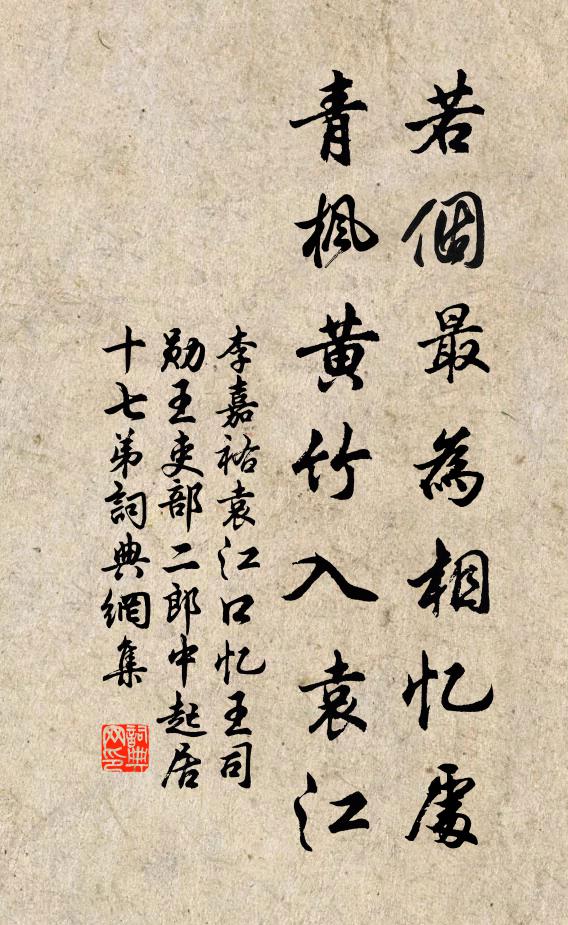 若個最為相忆處
青枫黄竹入袁江
李嘉祐袁江口忆王司
勋王吏部二郎中起居
十七弟詞典網集
詞典
网印